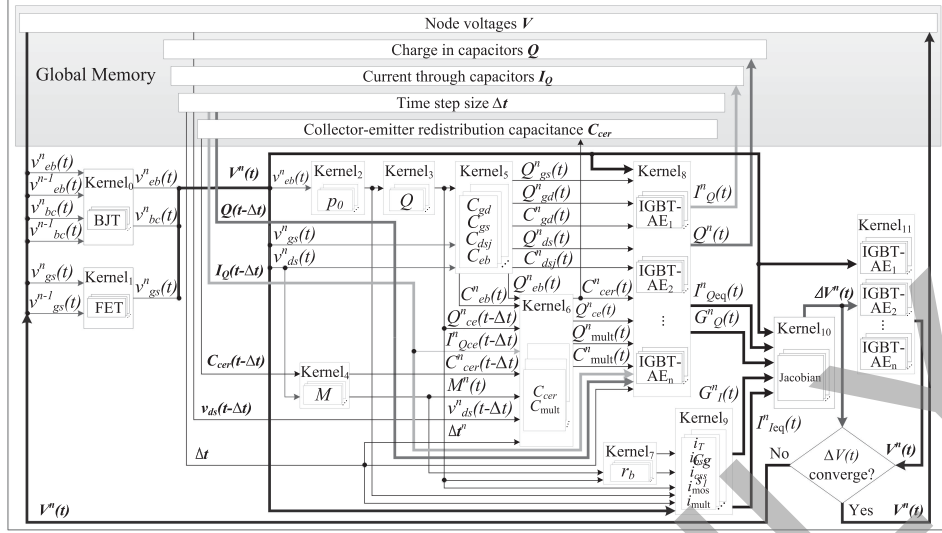 Node voltages V
Charge in capacitors Q
Global Memory
Current through capacitors I_Q
Time step size Δt
Collector-emitter redistribution capacitance C_cer
v^n_eb(t)
v^n-1_eb(t)
v^n_bc(t)
v^n-1_bc(t)
Kernel_0
BJT
v^n_eb(t)
v^n_bc(t)
v^n_gs(t)
v^n-1_gs(t)
Kernel_1
FET
v^n_gs(t)
V^n(t)
Q(t-Δt)
I_Q(t-Δt)
C_cer(t-Δt)
v_ds(t-Δt)
Δt
v^n_eb(t)
Kernel_2
p_0
Kernel_3
Q
v^n_gs(t)
v^n_ds(t)
Kernel_4
M
Kernel_5
C_gd
C_gs
C_dsj
C_eb
Q^n_gs(t)
Q^n_gd(t)
C^n_gd(t)
Q^n_ds(t)
C^n_dsj(t)
Q^n_eb(t)
C^n_eb(t)
Q^n_ce(t-Δt)
I^n_Qce(t-Δt)
C^n_cer(t-Δt)
M^n(t)
v^n_ds(t-Δt)
Δt^n
Kernel_6
C_cer
C_mult
C^n_cer(t)
Q^n_ce(t)
Q^n_mult(t)
C^n_mult(t)
Kernel_7
r_b
Kernel_8
IGBT-AE_1
IGBT-AE_2
⋮
IGBT-AE_n
I^n_Q(t)
Q^n(t)
I^n_Qeq(t)
G^n_Q(t)
G^n_I(t)
I^n_Ieq(t)
Kernel_9
i_T
i_css
i_mos
i_mult
Kernel_10
Jacobian
ΔV^n(t)
Kernel_11
IGBT-AE_1
IGBT-AE_2
⋮
IGBT-AE_n
No
ΔV(t)
converge?
V^n(t)
Yes
V^n(t)
V^n(t)